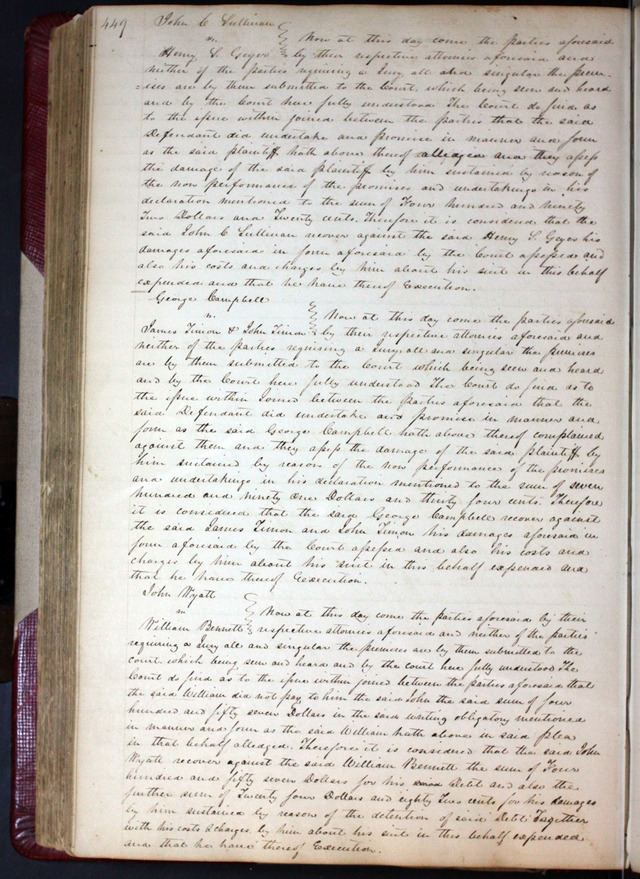 449 John C Sullivan
vs. Now at this day come the parties aforesaid
Henry S. Geyer by their respective attornies aforesaid and
neither of the parties requiring a Jury all and singular the prem-
=ises are by them submitted to the Court, which being seen and heard
and by the Court here fully understood The Court do find as
to the ifsue within joined between the parties that the said
Defendant did undertake and promise in manner and form
as the said plaintiff hath above thereof alledged and they afsefs
the damage of the said plaintiff by him sustained by reason of
the non performance of the promises and undertakings in his
declaration mentioned to the sum of Four hundred and ninety
Two Dollars and Twenty cents. Therefore it is considered that the
said John C Sullivan recover against the said Henry S. Geyer his
damages aforesaid in form aforesaid by the Court afsefsed and
also his costs and charges by him about his suit in this behalf
expended and that he have thereof Execution.
George Campbell
vs. Now at this day come the parties aforesaid
James Timon & John Timon by their respective attornies aforesaid and
neither of the parties requiring a Jury, all and singular the premises
are by them submitted to the Court which being seen and heard
and by the Court here fully understood The Court do find as to
the ifsue within Joined between the Parties aforesaid that the
said Defendant did undertake and promise in manner and
form as the said George Campbell hath above thereof complained
against them and they afsefs the damage of the said plaintiff by
him sustained by reason of the non performance of the promises
and undertakings in his declaration mentioned to the sum of seven
hundred and ninety One Dollars and thirty four cents. Therefore
it is considered that the said George Campbell recover against
the said James Timon and John Timon his damages aforesaid in
form aforesaid by the Court afsefsed and also his costs and
charges by him about his suit in this behalf expended and
that he have thereof Execution.
John Wyatt
vs Now at this day come the parties aforesaid by their
William Bennett respective attornies aforesaid and neither of the parties
requiring a Jury all and singular the premises are by them submitted to the
Court which being seen and heard and by the court here fully understood The
Court do find as to the ifsue within joined between the parties aforesaid that
the said William did not pay to him the said John the said sum of four
hundred and fifty seven Dollars in the said writing obligatory mentioned
in manner and form as the said William hath above in said plea
in that behalf alledged. Therefore it is considered that the said John
Wyatt recover against the said William Bennett the sum of Four
hundred and fifty seven Dollars for his Debt and also the
further sum of Twenty four Dollars and eighty Two cents for his damages
by him sustained by reason of the detention of said Debt Together
with his costs & charges by him about his suit in this behalf expended
and that he have thereof Execution.